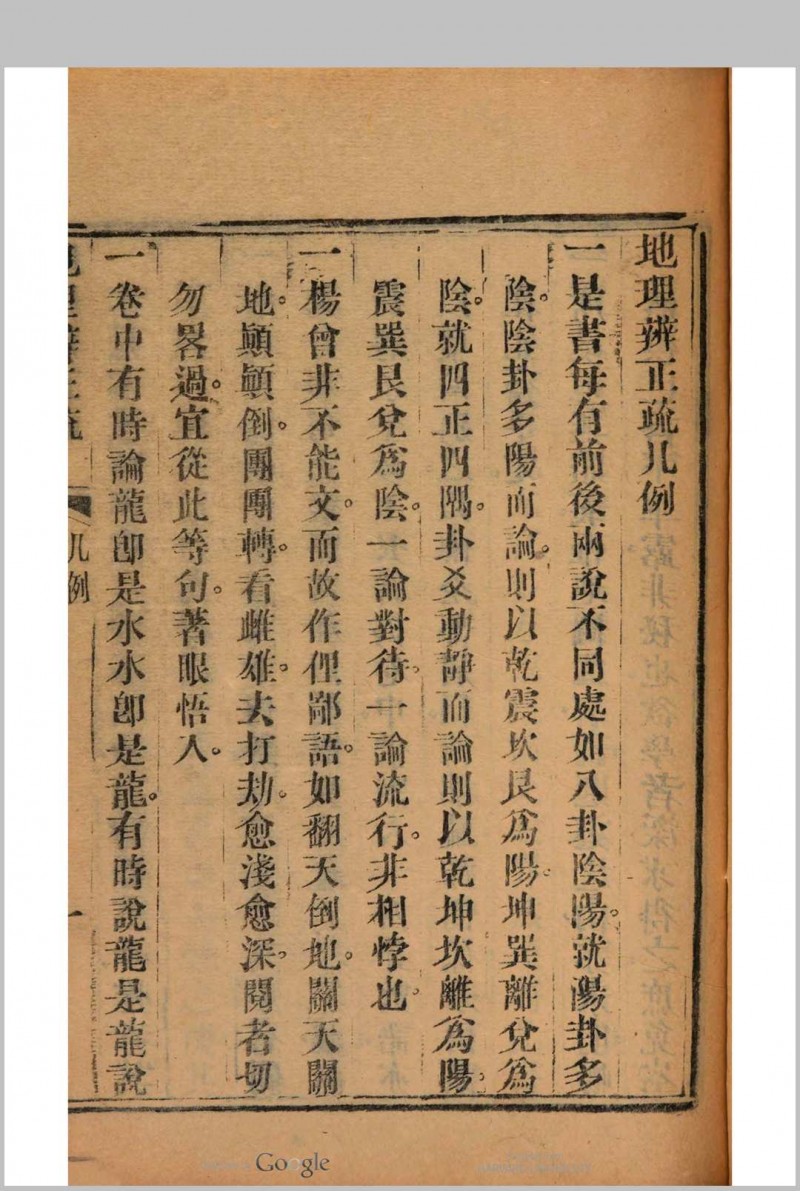 地理辨正疏凡例
一是書每有前後兩說不同處如八卦陰陽。就陽卦多
陰。陰卦多陽而論。則以乾震坎艮爲陽。坤巽離兌爲
陰。就四正四隅。卦爻動靜而論則以乾坤坎離爲陽。
震巽艮兌爲陰。一論對待。一論流行。非相悖也。
一楊曾非不能文。而故作俚鄙語。如翻天倒地。關天關
地。顛顛倒。團團轉。看雌雄。去打劫。愈淺愈深。閱者切
勿畧過。宜從此等句。著眼悟入。
一卷中有時論龍卽是水水卽是龍。有時說龍是龍說
地理辨正疏 凡例 一
Google